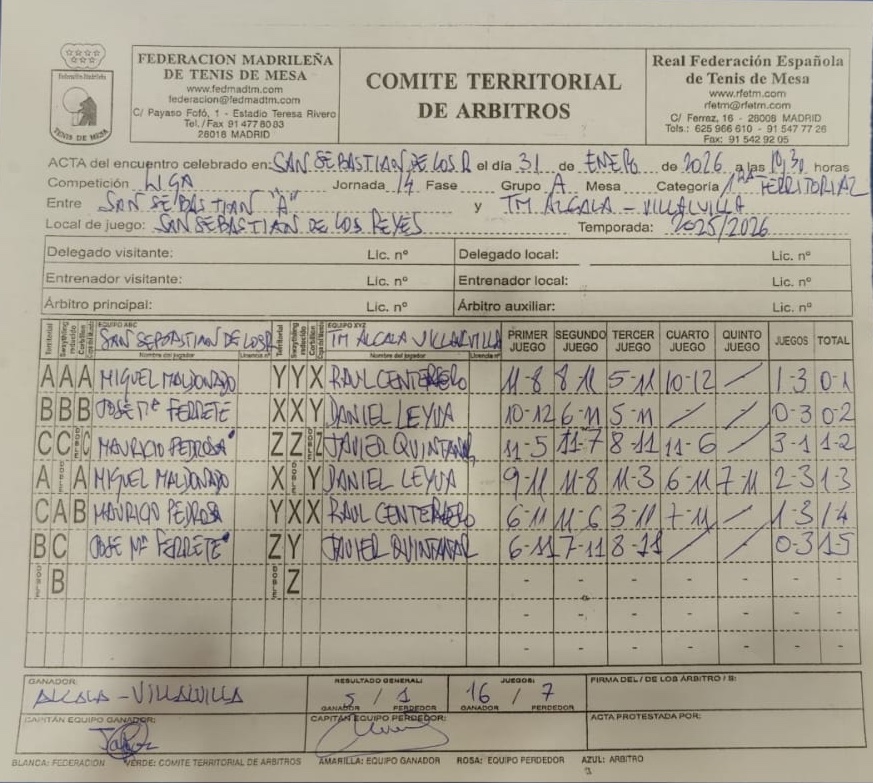 FEDERACION MADRILEÑA
DE TENIS DE MESA
www.fedmadtm.com
federacion@fedmadtm.com
C/ Payaso Fofó, 1 - Estadio Teresa Rivero
Tel./Fax 91 477 80 83
28018 MADRID
Federación Madrileña
TENIS DE MESA
COMITE TERRITORIAL
DE ARBITROS
Real Federación Española
de Tenis de Mesa
www.rfetm.com
rfetm@rfetm.com
C/ Ferraz, 16 - 28008 MADRID
Tels.: 625 966 610 - 91 547 77 26
Fax: 91 542 92 05
ACTA del encuentro celebrado en: SAN SEBASTIAN DE LOS R el día 31 de ENERO de 2026 a las 10,30 horas
Competición LIGA Jornada 14 Fase Grupo A Mesa Categoría 1ª TERRITORIAL
Entre SAN SEBASTIAN "A" y TM ALCALA - VILLALVILLA
Local de juego: SAN SEBASTIAN DE LOS REYES Temporada: 2025/2026
Delegado visitante: Lic. nº Delegado local: Lic. nº
Entrenador visitante: Lic. nº Entrenador local: Lic. nº
Árbitro principal: Lic. nº Árbitro auxiliar: Lic. nº
Territorial EQUIPO ABC SAN SEBASTIAN DE LOS R Nombre del jugador Licencia nº Territorial EQUIPO XYZ TM ALCALA VILLALVILLA Nombre del jugador Licencia nº PRIMER JUEGO SEGUNDO JUEGO TERCER JUEGO CUARTO JUEGO QUINTO JUEGO JUEGOS TOTAL
A A A MIGUEL MALDONADO Y Y X RAUL CENTENERO 11-8 8-11 5-11 10-12 / 1-3 0-1
B B B JOSE Mª FERRETE X X Y DANIEL LEYVA 10-12 6-11 5-11 / / 0-3 0-2
C C C MAURICIO PEDROSA Z Z JAVIER QUINTANAR 11-5 11-7 8-11 11-6 / 3-1 1-2
A A MIGUEL MALDONADO X Y DANIEL LEYVA 9-11 11-8 11-3 6-11 7-11 2-3 1-3
C A B MAURICIO PEDROSA Y X X RAUL CENTENERO 6-11 11-6 3-11 7-11 / 1-3 1-4
B C JOSE Mª FERRETE Z Y JAVIER QUINTANAR 6-11 7-11 8-11 / / 0-3 1-5
B Z - - - - - - -
- - - - - - -
- - - - - - -
GANADOR: ALCALA - VILLALVILLA RESULTADO GENERAL: 5 / 1 GANADOR PERDEDOR JUEGOS: 16 / 7 GANADOR PERDEDOR FIRMA DEL / DE LOS ARBITRO / S:
CAPITÁN EQUIPO GANADOR: CAPITÁN EQUIPO PERDEDOR: ACTA PROTESTADA POR:
BLANCA: FEDERACIÓN VERDE: COMITE TERRITORIAL DE ARBITROS AMARILLA: EQUIPO GANADOR ROSA: EQUIPO PERDEDOR AZUL: ARBITRO